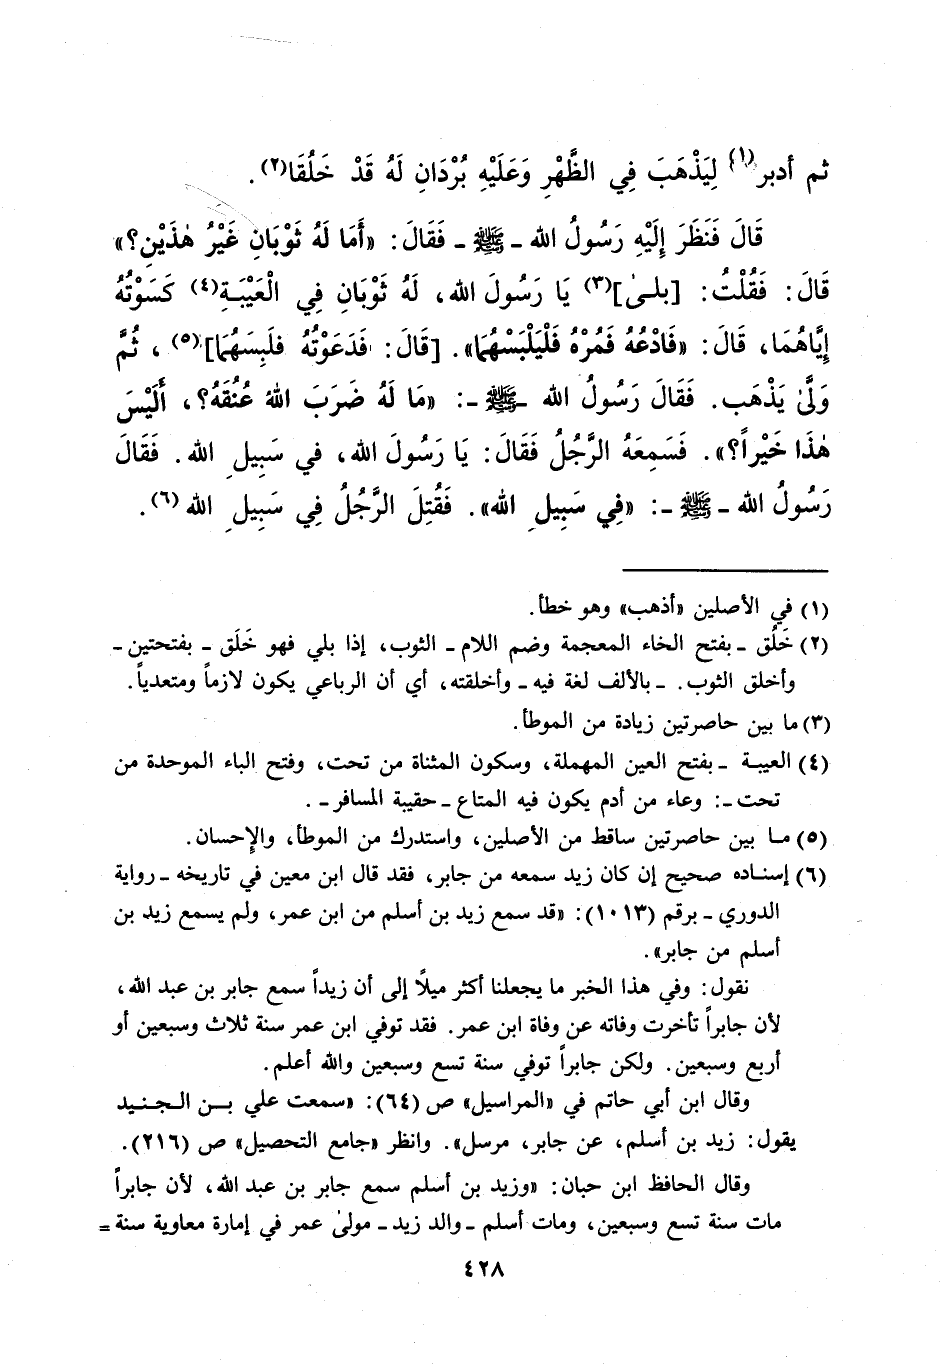 ثم أدبر(١) لِيَذْهَبَ فِي الظَّهْرِ وَعَلَيْهِ بُرْدَانِ لَهُ قَدْ خَلُقَا(٢).
قَالَ فَنَظَرَ إِلَيْهِ رَسُولُ الله - ﷺ - فَقَالَ: «أَمَا لَهُ ثَوْبَانِ غَيْرُ هٰذَيْنِ؟»
قَالَ: فَقُلْتُ: [بلىٰ](٣) يَا رَسُولَ الله، لَهُ ثَوْبَانِ فِي الْعَيْبَةِ(٤) كَسَوْتُهُ
إِيَّاهُمَا، قَالَ: «فَادْعُهُ فَمُرْهُ فَلْيَلْبَسْهُمَا». [قَالَ: فَدَعَوْتُهُ فلَبِسَهُمَا](٥)، ثُمَّ
وَلَّىٰ يَذْهَب. فَقَالَ رَسُولُ الله - ﷺ -: «مَا لَهُ ضَرَبَ اللهُ عُنُقَهُ؟، أَلَيْسَ
هٰذَا خَيْراً؟». فَسَمِعَهُ الرَّجُلُ فَقَالَ: يَا رَسُولَ الله، في سَبِيلِ الله. فَقَالَ
رَسُولُ الله - ﷺ -: «فِي سَبِيلِ الله». فَقُتِلَ الرَّجُلُ فِي سَبِيلِ الله(٦).
(١) في الأصلين «أذهب» وهو خطأ.
(٢) خَلُق - بفتح الخاء المعجمة وضم اللام - الثوب، إذا بلي فهو خَلَق - بفتحتين -
وأخلق الثوب. - بالألف لغة فيه - وأخلقته، أي أن الرباعي يكون لازماً ومتعدياً.
(٣) ما بين حاصرتين زيادة من الموطأ.
(٤) العيبة - بفتح العين المهملة، وسكون المثناة من تحت، وفتح الباء الموحدة من
تحت -: وعاء من أدم يكون فيه المتاع - حقيبة المسافر -.
(٥) ما بين حاصرتين ساقط من الأصلين، واستدرك من الموطأ، والإحسان.
(٦) إسناده صحيح إن كان زيد سمعه من جابر، فقد قال ابن معين في تاريخه - رواية
الدوري - برقم (١٠١٣): «قد سمع زيد بن أسلم من ابن عمر، ولم يسمع زيد بن
أسلم من جابر».
نقول: وفي هذا الخبر ما يجعلنا أكثر ميلاً إلى أن زيداً سمع جابر بن عبد الله،
لأن جابراً تأخرت وفاته عن وفاة ابن عمر. فقد توفي ابن عمر سنة ثلاث وسبعين أو
أربع وسبعين. ولكن جابراً توفي سنة تسع وسبعين والله أعلم.
وقال ابن أبي حاتم في «المراسيل» ص (٦٤): «سمعت علي بن الجنيد
يقول: زيد بن أسلم، عن جابر، مرسل». وانظر «جامع التحصيل» ص (٢١٦).
وقال الحافظ ابن حبان: «وزيد بن أسلم سمع جابر بن عبد الله، لأن جابراً
مات سنة تسع وسبعين، ومات أسلم - والد زيد - مولىٰ عمر في إمارة معاوية سنة =
٤٢٨